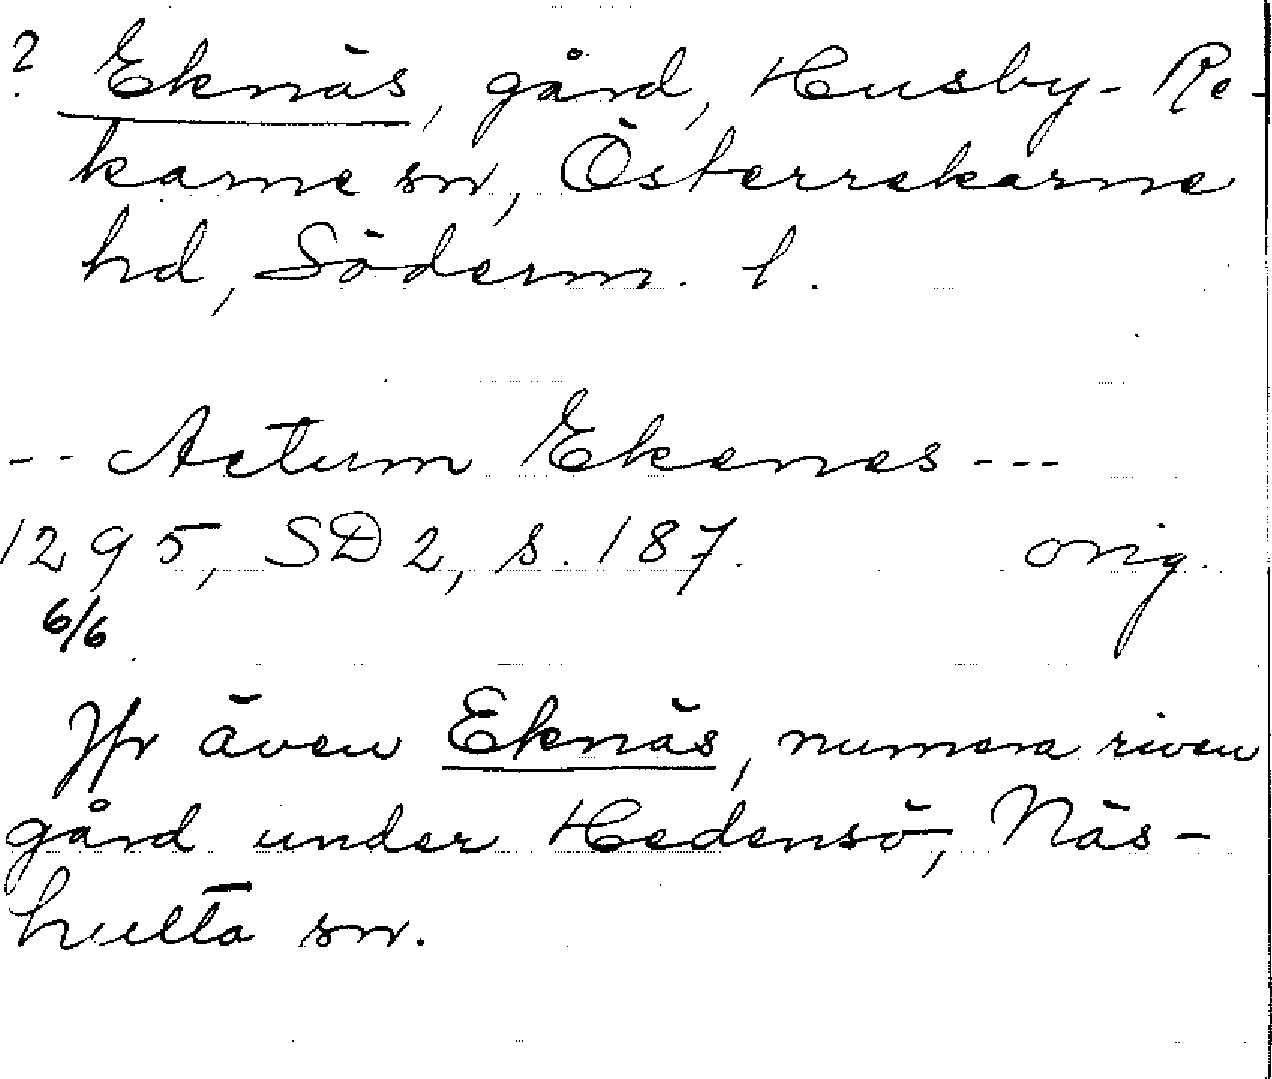 ? Eknäs, gård, Husby-Re-
karne sn, Österrekarne
hd, Söderm. l.
-- Actum Ekenes ---
1295, SD 2, s. 187. orig.
6/6
Jfr även Eknäs, numera riven
gård under Hedensö, Näs-
hulta sn.